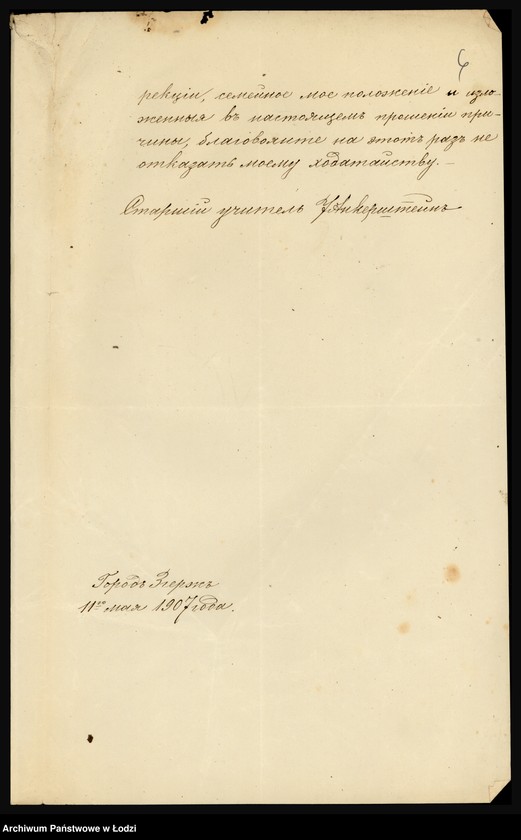 рекціи, семейное мое положеніе и изло-
женныя въ настоящемъ прошеніи при-
чины, благоволите на этотъ разъ не
отказать моему ходатайству. —
Старшій учитель Анкерштейнъ
Городъ Згержъ
11го мая 1907 года.
Archiwum Państwowe w Łodzi